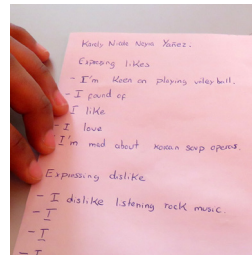 Karely Nicole Neyra Yañez.
Expressing likes
- I'm keen on playing voley ball.
- I found of
- I like
- I love
- I'm mad about korean soup operas.
Expressing dislike
- I dislike listening rock music.
- I
- I
- I